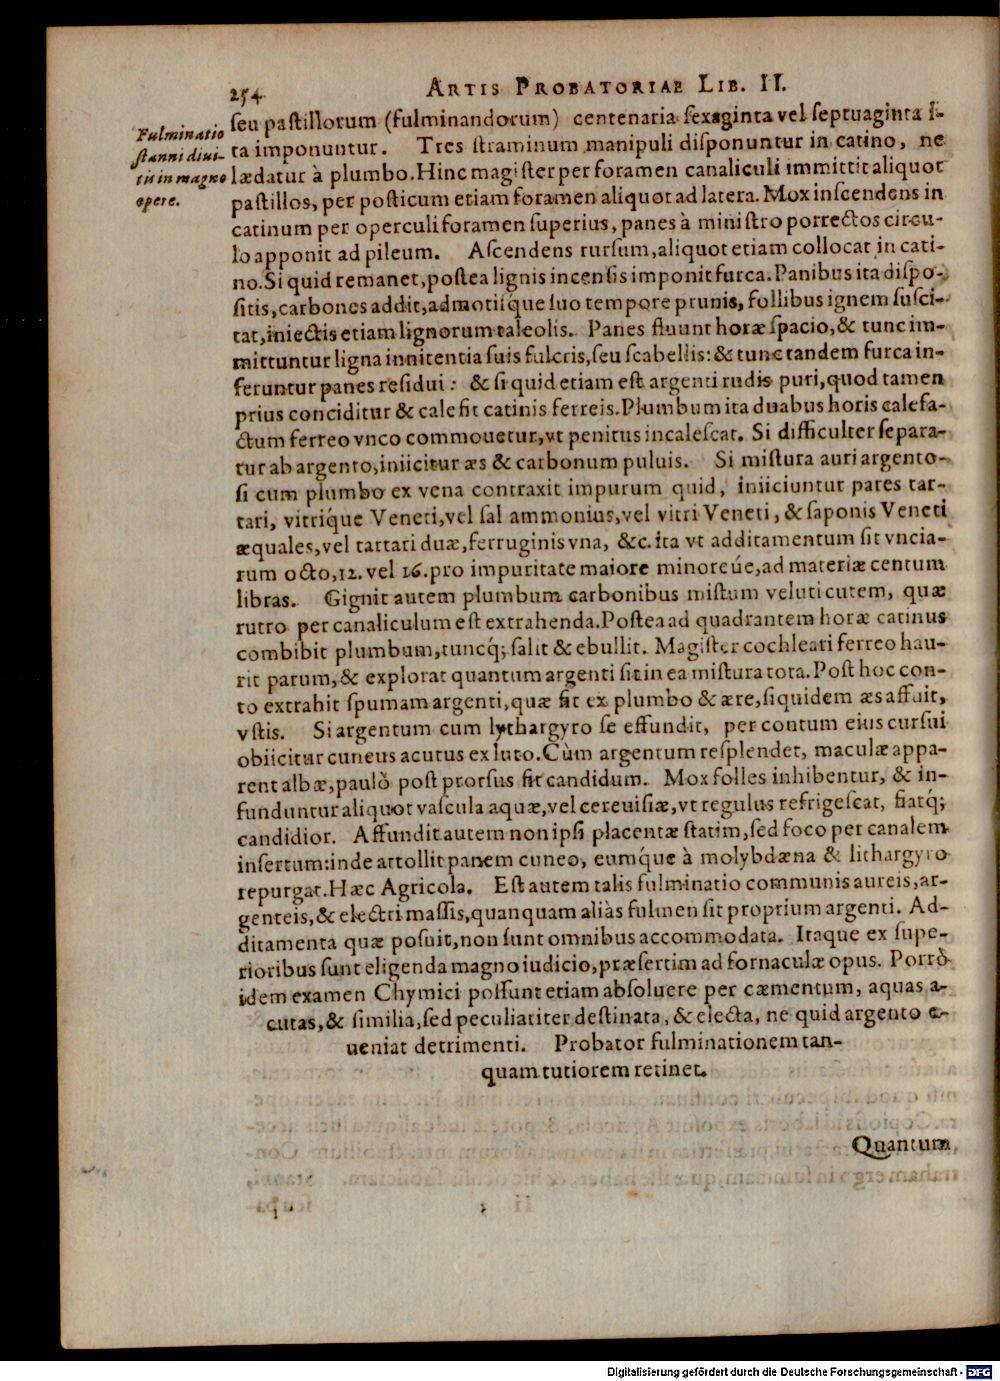 254 ARTIS PROBATORIAE LIB. II.
Fulminatio
stanni diui-
tis in magno
opere.
seu pastillorum (fulminandorum) centenaria sexaginta vel septuaginta i-
ta imponuntur. Tres straminum manipuli disponuntur in catino, ne
lædatur à plumbo. Hinc magister per foramen canaliculi immittit aliquot
pastillos, per posticum etiam foramen aliquot ad latera. Mox inscendens in
catinum per operculi foramen superius, panes à ministro porrectos circu-
lo apponit ad pileum. Ascendens rursum, aliquot etiam collocat in cati-
no. Si quid remanet, postea lignis incensis imponit furca. Panibus ita dispo-
sitis, carbones addit, admotisque suo tempore prunis, follibus ignem susci-
tat, iniectis etiam lignorum taleolis. Panes fluunt horæ spacio, & tunc im-
mittuntur ligna innitentia suis fulcris, seu scabellis: & tunc tandem furca in-
feruntur panes residui: & si quid etiam est argenti rudis puri, quod tamen
prius conciditur & calefit catinis ferreis. Plumbum ita duabus horis calefa-
ctum ferreo vnco commouetur, vt penitus incalescat. Si difficulter separa-
tur ab argento, iniicitur æs & carbonum puluis. Si mistura auri argento-
si cum plumbo ex vena contraxit impurum quid, iniiciuntur pares tar-
tari, vitríque Veneti, vel sal ammonius, vel vitri Veneti, & saponis Veneti
æquales, vel tartari duæ, ferruginis vna, &c. ita vt additamentum sit vncia-
rum octo, 12. vel 16. pro impuritate maiore minoreúe, ad materiæ centum
libras. Gignit autem plumbum carbonibus mistum veluti cutem, quæ
rutro per canaliculum est extrahenda. Postea ad quadrantem horæ catinus
combibit plumbum, tuncq́; salit & ebullit. Magister cochleari ferreo hau-
rit parum, & explorat quantum argenti sit in ea mistura tota. Post hoc con-
to extrahit spumam argenti, quæ fit ex plumbo & ære, siquidem æs affuit,
vstis. Si argentum cum lythargyro se effundit, per contum eius cursui
obiicitur cuneus acutus ex luto. Cùm argentum resplendet, maculæ appa-
rent albæ, paulò post prorsus fit candidum. Mox folles inhibentur, & in-
funduntur aliquot vascula aquæ, vel cereuisiæ, vt regulus refrigescat, fiatq́;
candidior. Affundit autem non ipsi placentæ statim, sed foco per canalem
insertum: inde attollit panem cuneo, eumq́ue à molybdæna & lithargyro
repurgat. Hæc Agricola. Est autem talis fulminatio communis aureis, ar-
genteis, & electri massis, quanquam aliàs fulmen sit proprium argenti. Ad-
ditamenta quæ posuit, non sunt omnibus accommodata. Itaque ex supe-
rioribus sunt eligenda magno iudicio, præsertim ad fornaculæ opus. Porrò
idem examen Chymici possunt etiam absoluere per cæmentum, aquas a-
cutas, & similia, sed peculiariter destinata, & electa, ne quid argento e-
ueniat detrimenti. Probator fulminationem tan-
quam tutiorem retinet.
Quantum
Digitalisierung gefördert durch die Deutsche Forschungsgemeinschaft - DFG